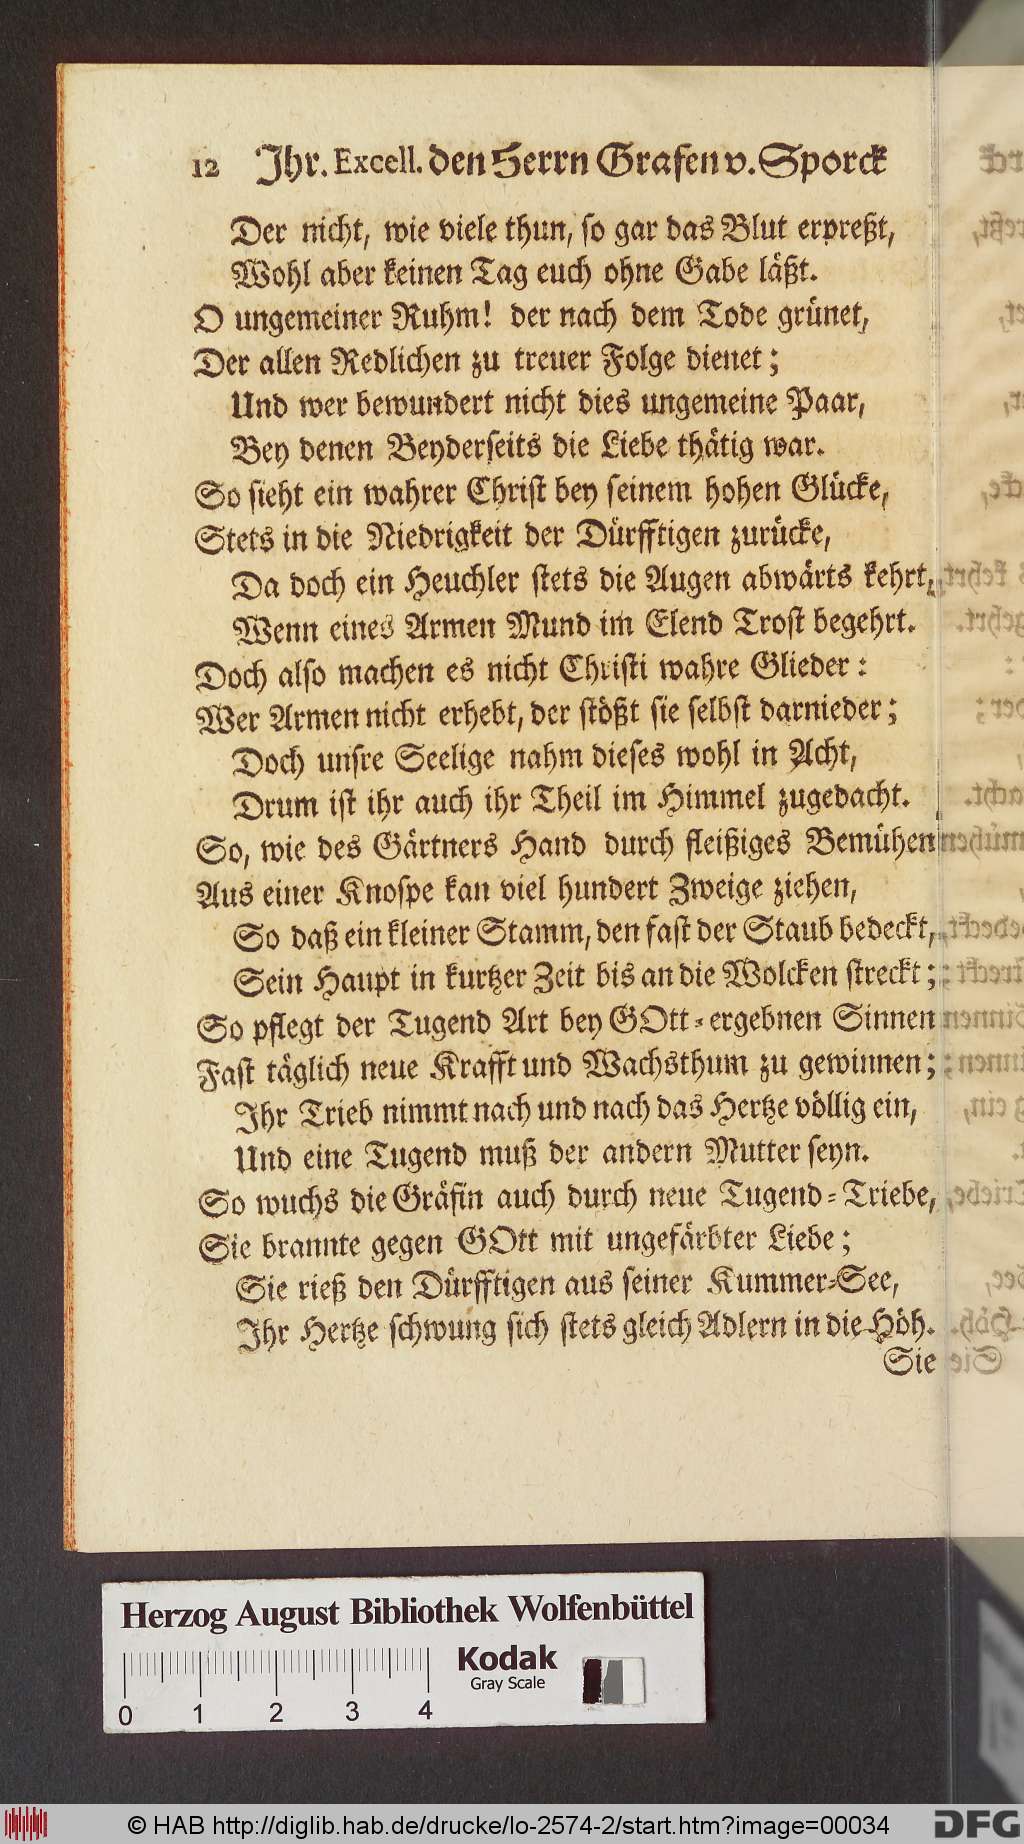 12 Jhr. Excell. den Herrn Grafen v. Sporck
Der nicht, wie viele thun, so gar das Blut erpreßt,
Wohl aber keinen Tag euch ohne Gabe läßt.
O ungemeiner Ruhm! der nach dem Tode grünet,
Der allen Redlichen zu treuer Folge dienet;
Und wer bewundert nicht dies ungemeine Paar,
Bey denen Beyderseits die Liebe thätig war.
So sieht ein wahrer Christ bey seinem hohen Glücke,
Stets in die Niedrigkeit der Dürfftigen zurücke,
Da doch ein Heuchler stets die Augen abwärts kehrt,
Wenn eines Armen Mund im Elend Trost begehrt.
Doch also machen es nicht Christi wahre Glieder:
Wer Armen nicht erhebt, der stößt sie selbst darnieder;
Doch unsre Seelige nahm dieses wohl in Acht,
Drum ist ihr auch ihr Theil im Himmel zugedacht.
So, wie des Gärtners Hand durch fleißiges Bemühen
Aus einer Knospe kan viel hundert Zweige ziehen,
So daß ein kleiner Stamm, den fast der Staub bedeckt,
Sein Haupt in kurtzer Zeit bis an die Wolcken streckt;
So pflegt der Tugend Art bey GOtt-ergebnen Sinnen
Fast täglich neue Krafft und Wachsthum zu gewinnen;
Jhr Trieb nimmt nach und nach das Hertze völlig ein,
Und eine Tugend muß der andern Mutter seyn.
So wuchs die Gräfin auch durch neue Tugend-Triebe,
Sie brannte gegen GOtt mit ungefärbter Liebe;
Sie rieß den Dürfftigen aus seiner Kummer-See,
Jhr Hertze schwung sich stets gleich Adlern in die Höh.
Sie
Herzog August Bibliothek Wolfenbüttel
Kodak
Gray Scale
0 1 2 3 4
© HAB http://diglib.hab.de/drucke/lo-2574-2/start.htm?image=00034
DFG